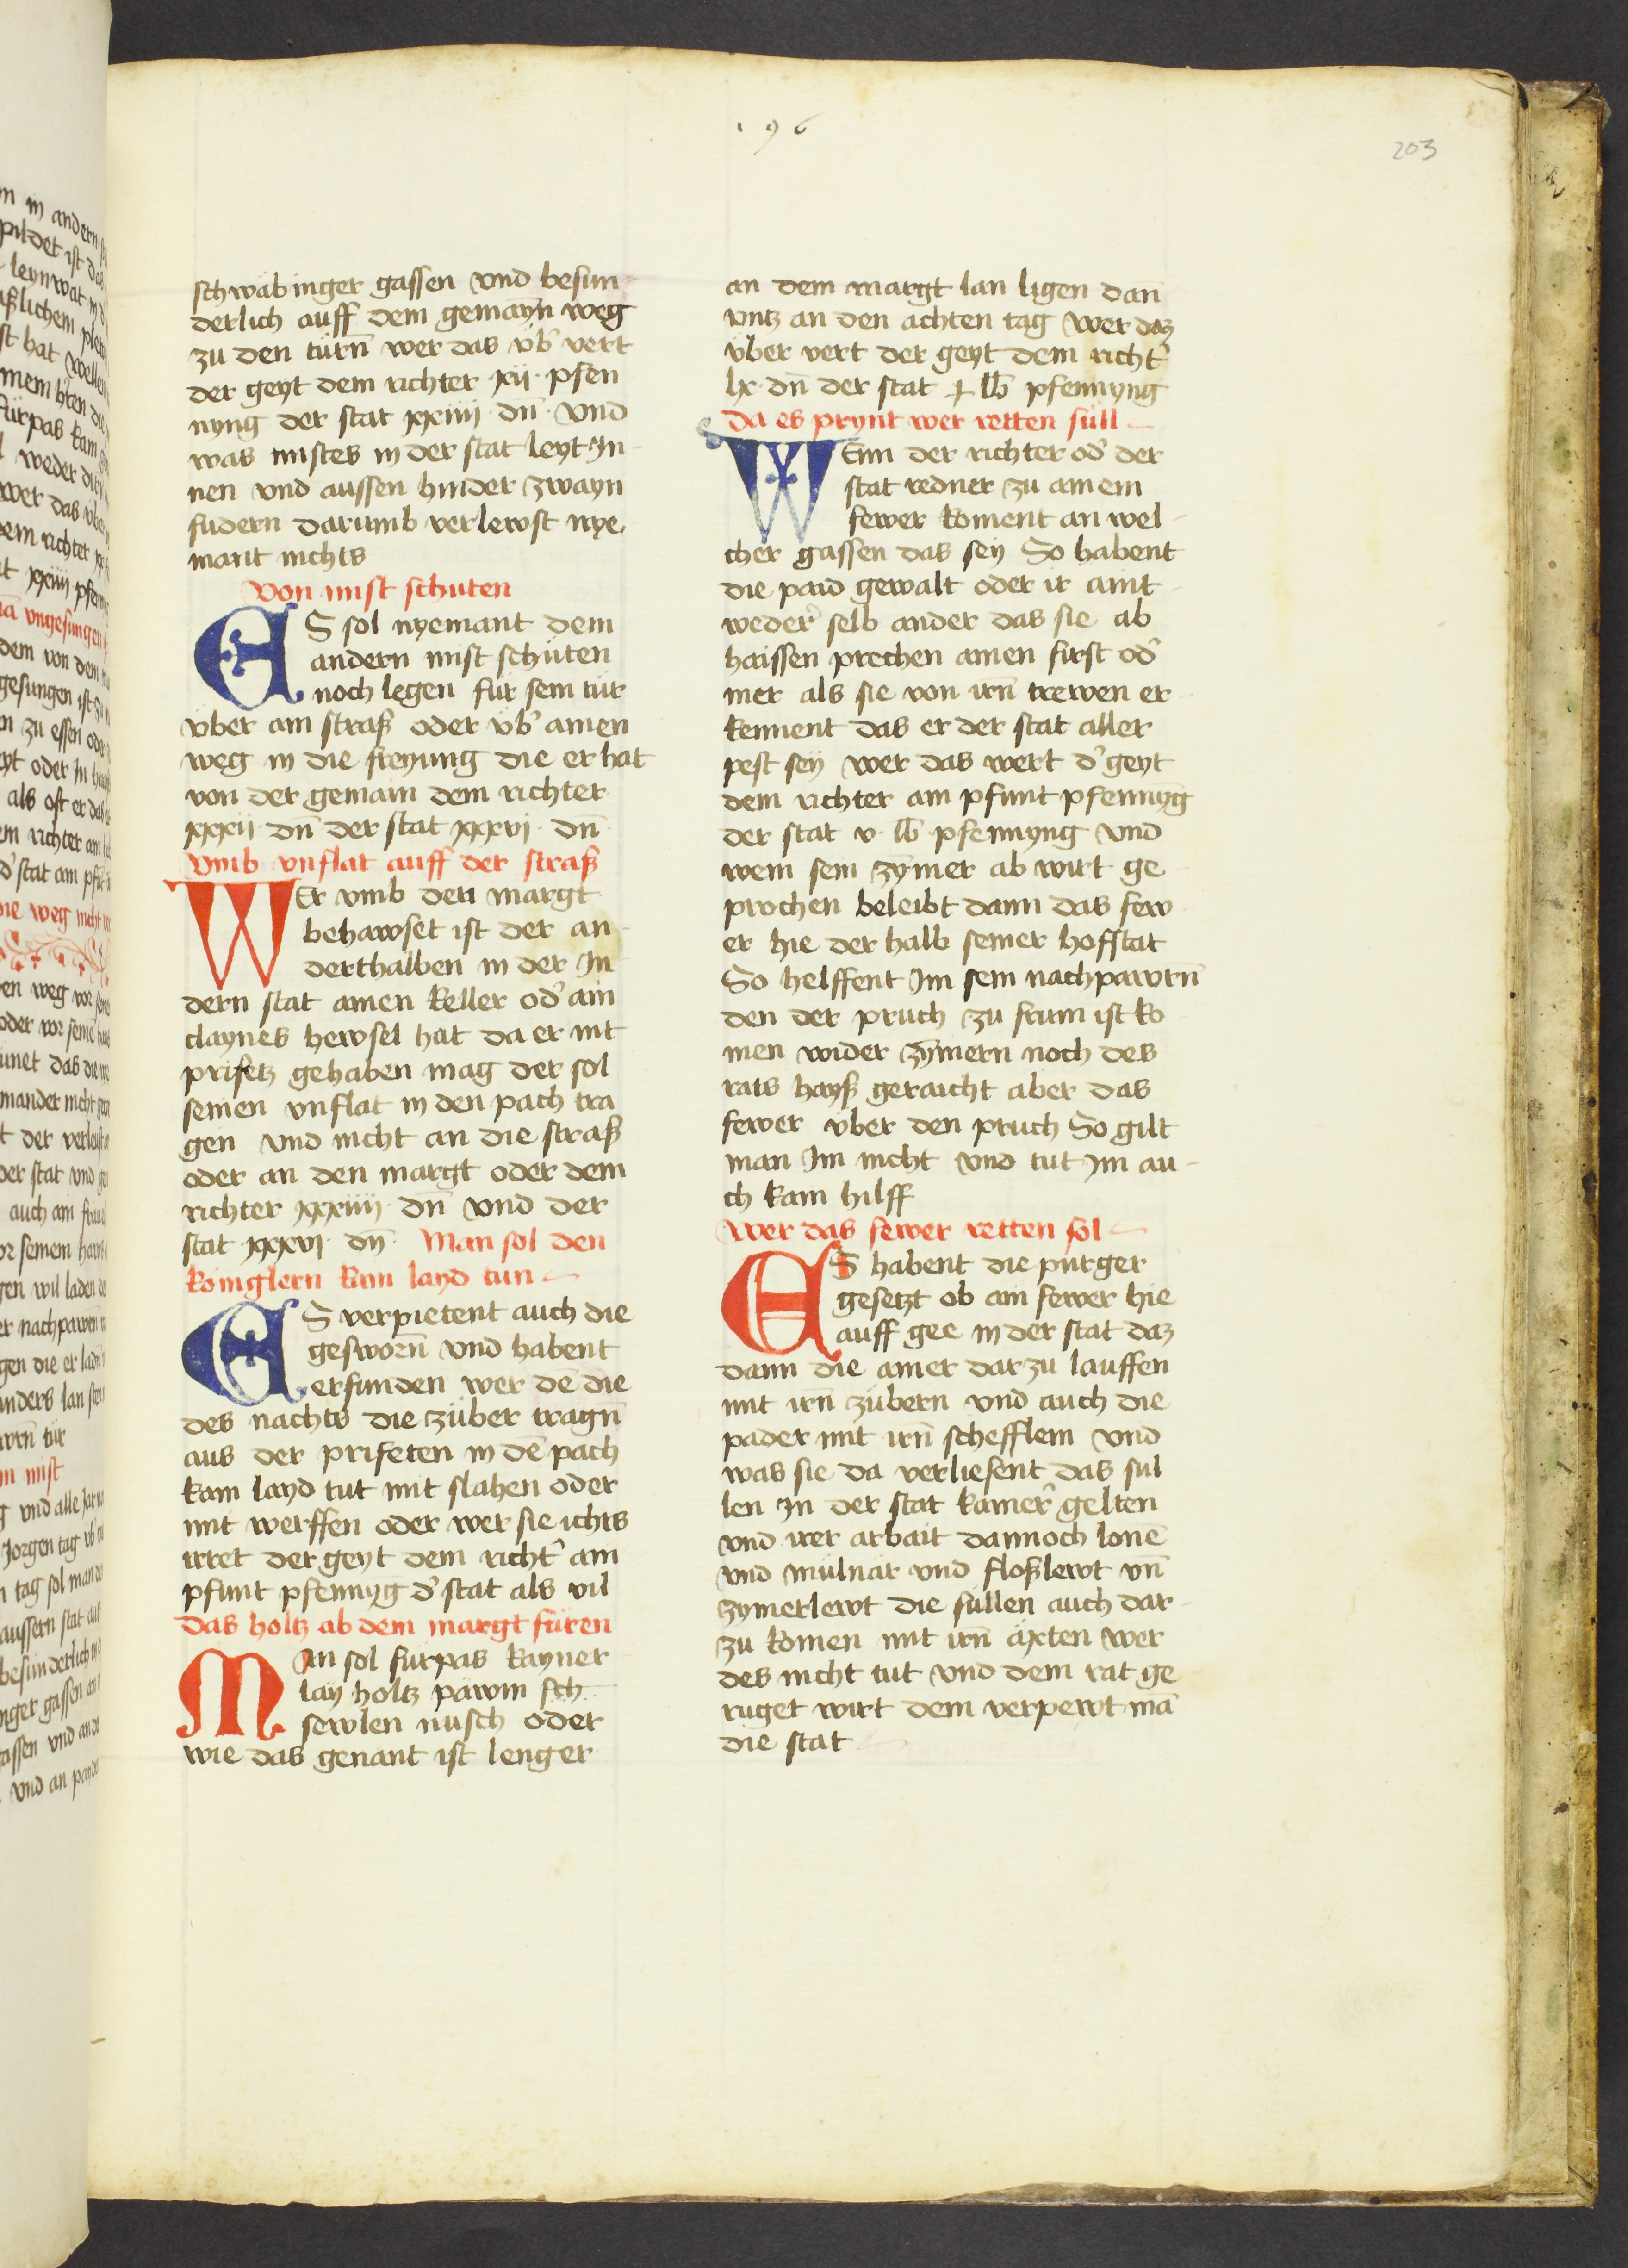 196
203
schwäbinger gassen vnd besun
derlich auff dem gemayn weg
zu den türn̄ wer das vb̓ vert
der geyt dem richter xij · pfen
nyng der stat xxiiij · dn̄ · vnd
was mistes in der stat leyt In
nen vnd aussen hinder zwayn
fudern darumb verlewst nye
mant nichts
Von mist schüten
ES sol nyemant dem
andern mist schüten
noch legen für sein tür
vber ain straß oder vb̓ ainen
weg in die freyung die er hat
von der gemain dem richter
xxxij · dn̄ der stat xxxvj · dn̄
Vmb vnflat auff der straß
WEr vmb den margt
behawset ist der an
derthalben in der In
dern stat ainen keller od̓ ain
claynes hewsel hat da er nit
prifetz gehaben mag der sol
seinen vnflat in den pach tra
gen vnd nicht an die straß
oder an den margt oder dem
richter xxxiiij · dn̄ vnd der
stat xxxvj · dn̄ · Man sol den
königlern kain layd tun
ES verpietent auch die
gesworn̄ vnd habent
erfunden wer de die
des nachts die züber tragn̄
aus der prifeten in dē pach
kain layd tut mit slahen oder
mit werffen oder wer sie ichts
irret der geyt dem richt̓ ain
pfunt pfennyg d̓ stat als vil
Das holtz ab dem margt füren
MAn sol fürpas kayner
lay holtz pawm sch
sewlen nüsch oder
wie das genant ist lenger
an dem margt lan ligen dan
vntz an den achten tag wer daz
vber vert der geyt dem richt̓
lx · dn̄ der stat ɟ lb̄ pfennyng
Da es prynt wer retten süll
WEnn der richter od̓ der
stat redner zu ainem
fewer koment an wel
cher gassen das sey So habent
die paid gewalt oder ir aint
weder̓ selb ander das sie ab
haissen prechen ainen first od̓
mer als sie von irn̄ trewen er
kennent das er der stat aller
pest sey wer das wert d̓ geyt
dem richter ain pfunt pfennyg
der stat v · lb̄ pfennyng vnd
wem sein zymer ab wirt ge
prochen beleibt dann das few
er hie der halb seiner hofstat
So helffent Im sein nachpawrn̄
den der pruch zu frum ist ko
men wider zymern noch des
rats hayß geraicht aber das
fewer vber den pruch So gilt
man Im nicht vnd tut Im au
ch kain hilff
Wer das fewer retten sol
ES habent die purger
gesetzt ob ain fewer hie
auff gee in der stat daz
dann die ainer dar zu lauffen
mit irn̄ zübern vnd auch die
pader mit irn̄ schefflein vnd
was sie da verliesent das sul
len In der stat kamer̓ gelten
vnd irer arbait dannoch lonē
vnd mülnär vnd floßlewt vn̄
zymerlewt die süllen auch dar
zu komen mit irn̄ äxten wer
des nicht tut vnd dem rat ge
ruget wirt dem verpewt mā
die stat